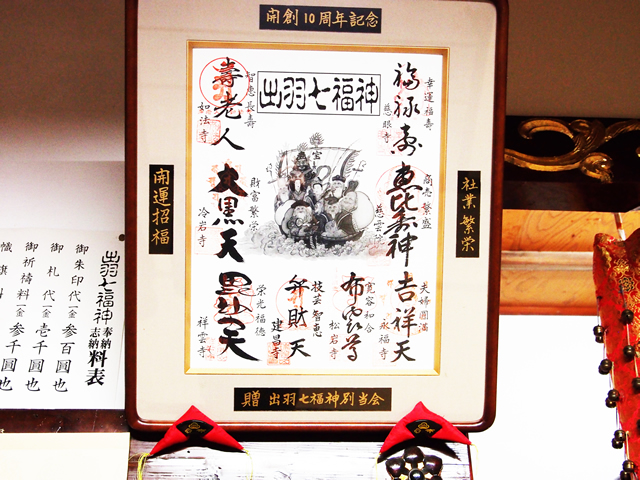 開創10周年記念
出羽七福神
幸運福壽
福禄壽
慈眼寺
商売繁盛
恵比寿神
慈雲院
夫婦圓満
吉祥天
永福寺
寛容和合
布袋尊
松岩寺
技芸智恵
弁財天
建昌寺
智恵長壽
壽老人
如法寺
財富繁栄
大黒天
冷岩寺
栄光福徳
毘沙門天
祥雲寺
社業繁栄
開運招福
贈 出羽七福神別当会
出羽七福神 奉納志納 料表
御朱印代 一金 参百圓也
御札代 一金 壱千圓也
御祈祷料 一金 参千圓也